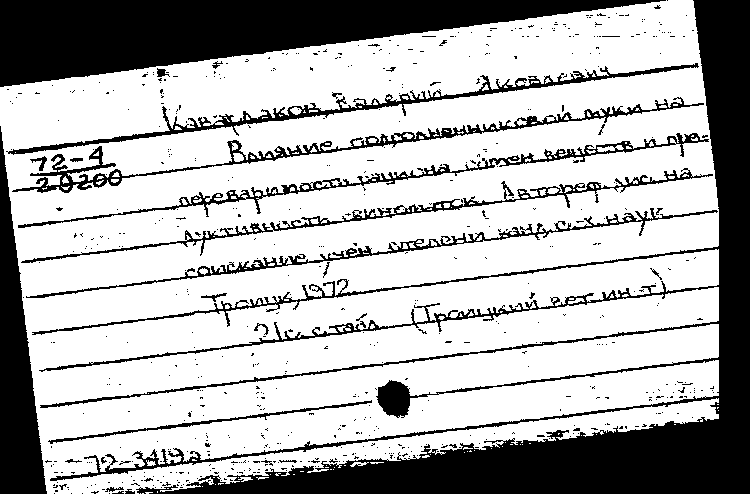 Кавардаков, Валерий Яковлевич
72-4
20200
Влияние подсолнечниковой муки на
переваримость рациона, обмен веществ и про-
дуктивность свиноматок. Автореф. дис. на
соискание учен. степени канд. с.-х. наук.
Троицк, 1972.
21с. с табл. (Троицкий вет. ин-т)
72-3419а